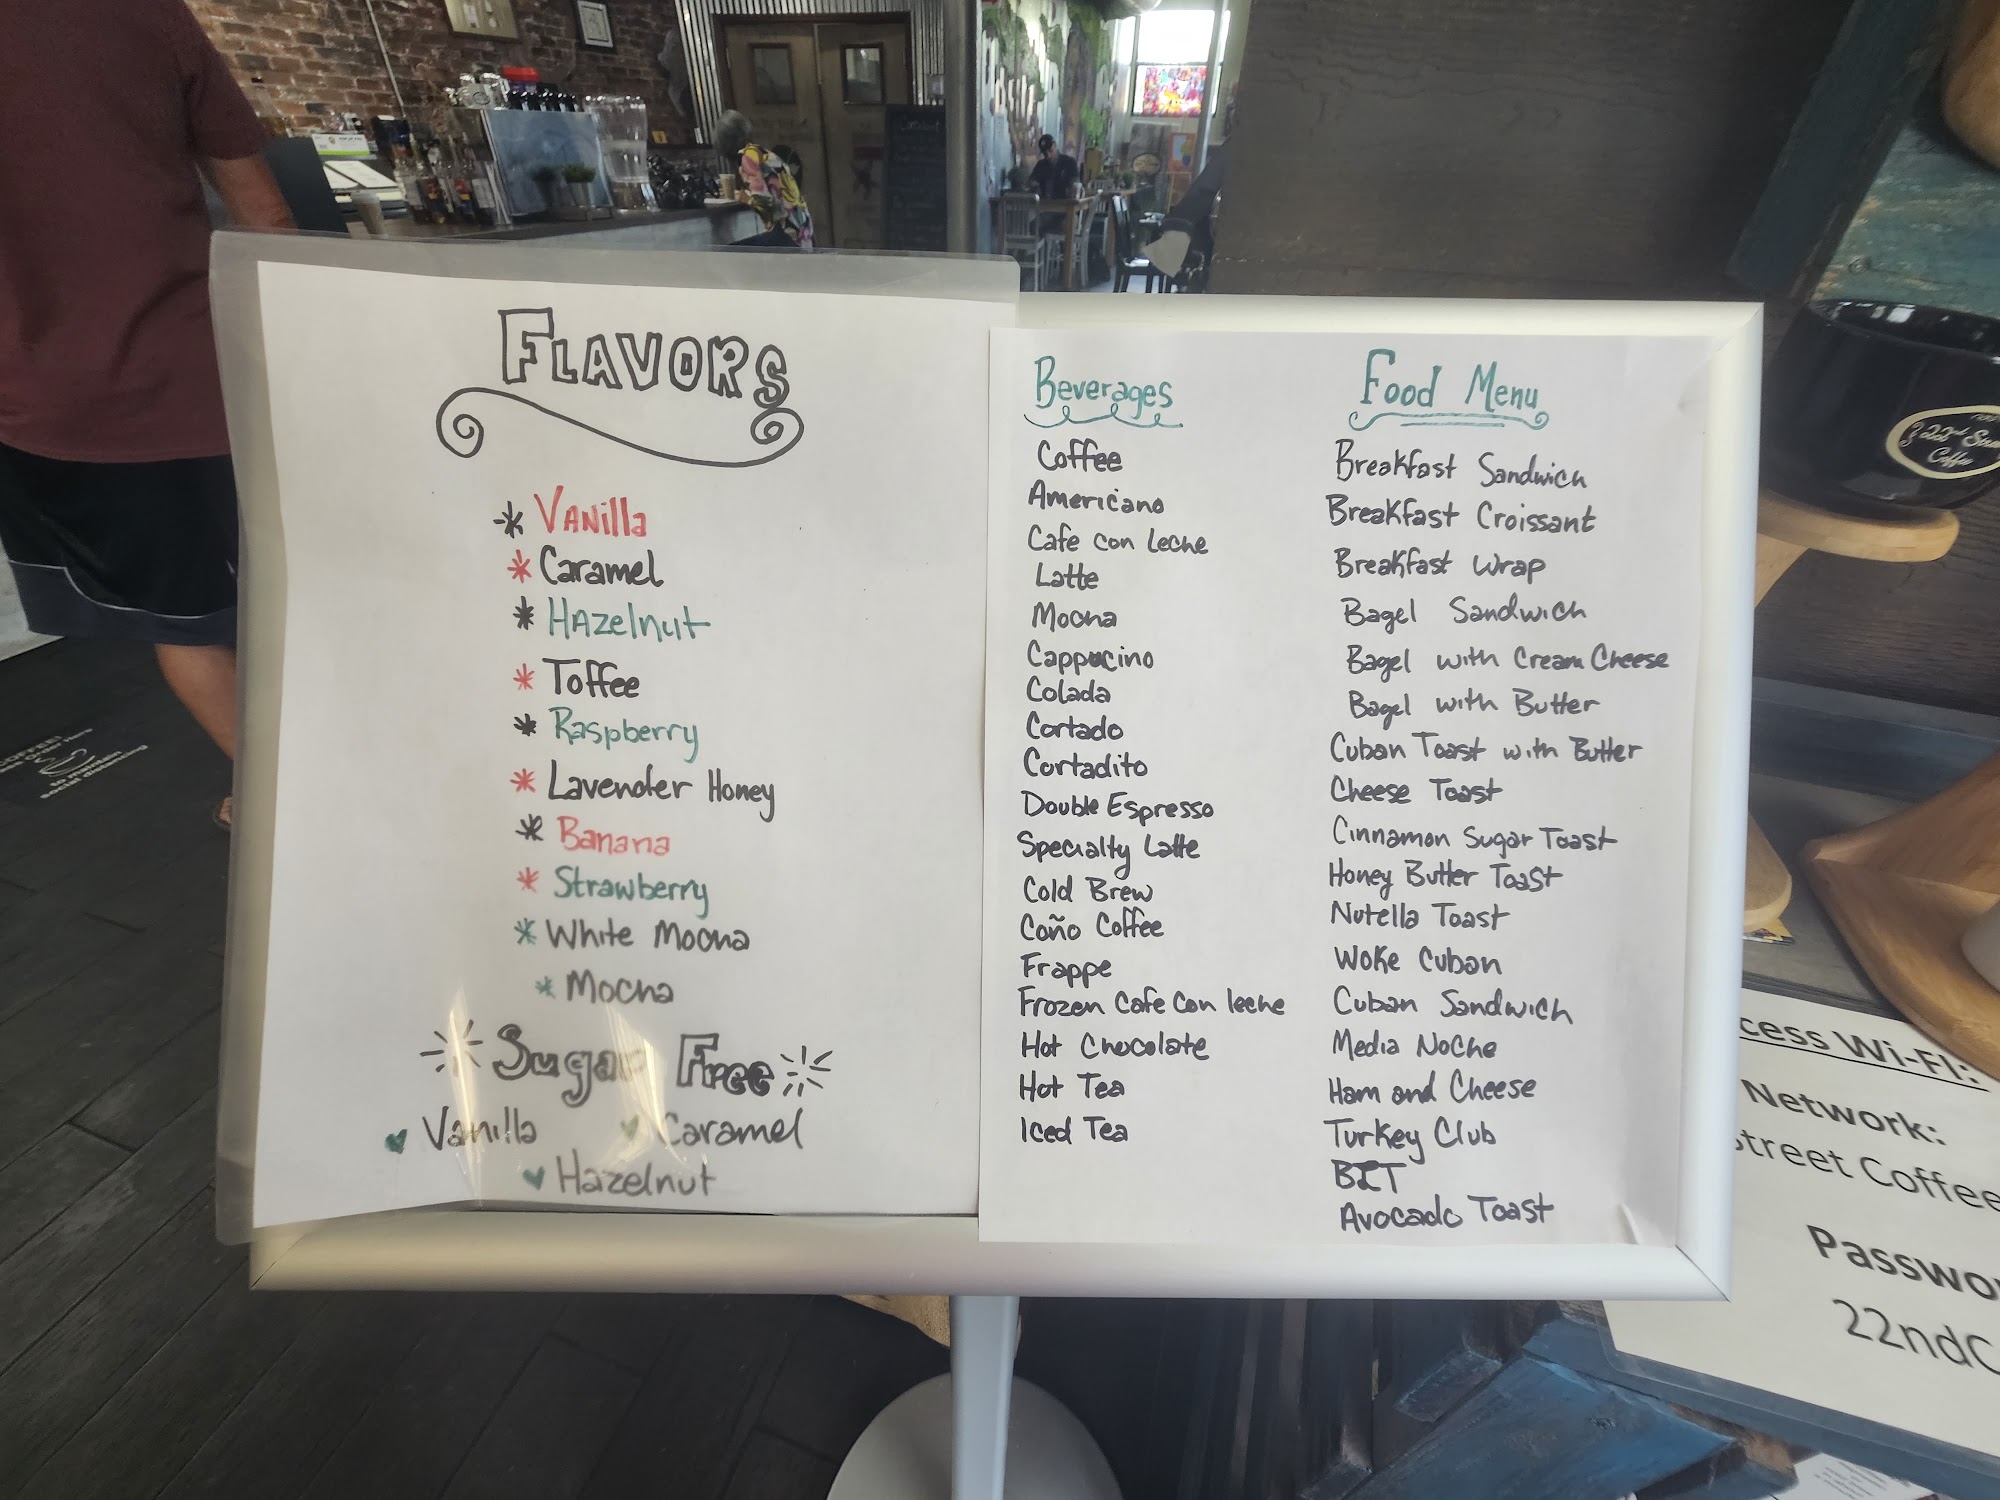 FLAVORS
* Vanilla
* Caramel
* Hazelnut
* Toffee
* Raspberry
* Lavender Honey
* Banana
* Strawberry
* White Mocha
* Mocha
Sugar Free
Vanilla
Caramel
Hazelnut
Beverages
Coffee
Americano
Cafe con Leche
Latte
Mocha
Cappucino
Colada
Cortado
Cortadito
Double Espresso
Specialty Latte
Cold Brew
Coño Coffee
Frappe
Frozen Cafe Con leche
Hot Chocolate
Hot Tea
Iced Tea
Food Menu
Breakfast Sandwich
Breakfast Croissant
Breakfast Wrap
Bagel Sandwich
Bagel with Cream Cheese
Bagel with Butter
Cuban Toast with Butter
Cheese Toast
Cinnamon Sugar Toast
Honey Butter Toast
Nutella Toast
Woke Cuban
Cuban Sandwich
Media Noche
Ham and Cheese
Turkey Club
BLT
Avocado Toast
22nd
Coffee
cess Wi-Fi:
Network:
treet Coffee
Passwo
22ndC